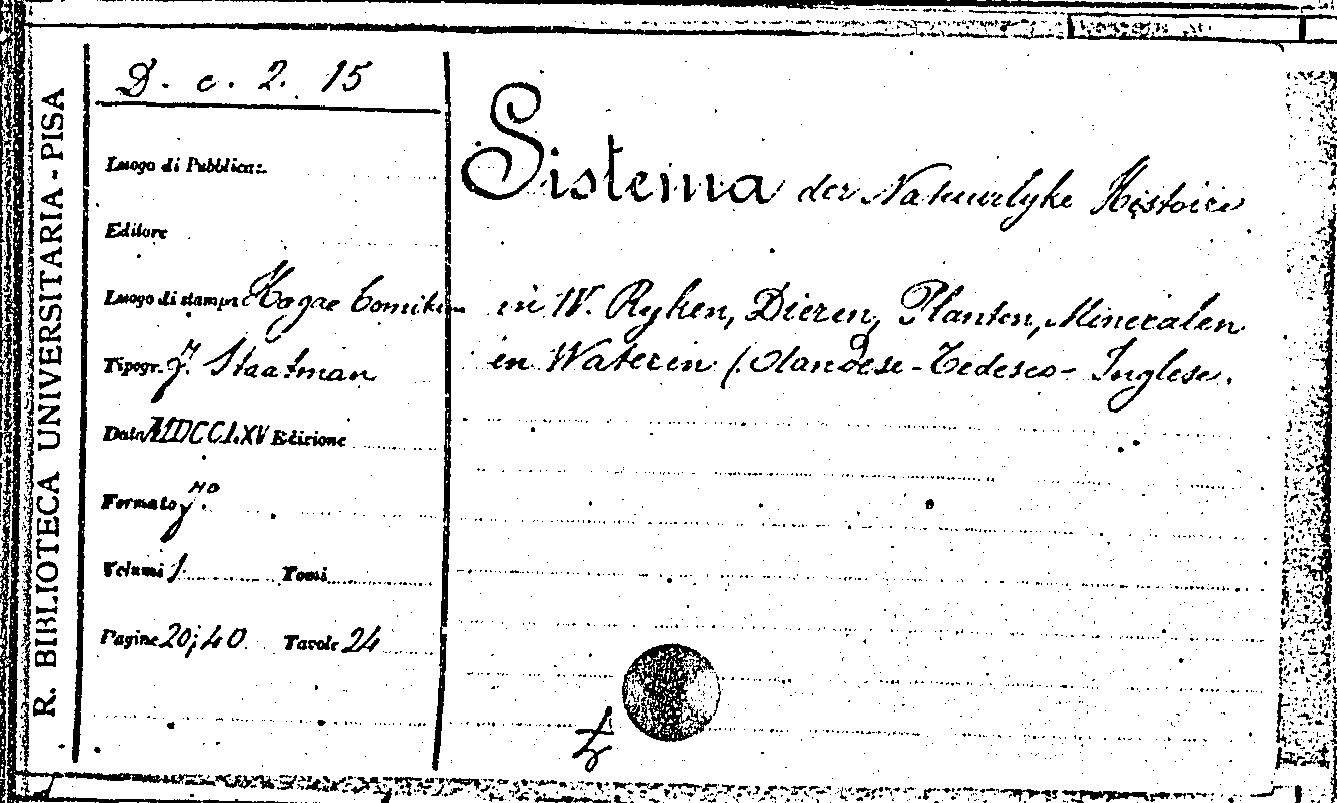 R. BIBLIOTECA UNIVERSITARIA - PISA
D. c. 2. 15
Luogo di Pubblicaz.
Editore
Luogo di stampa Hagae Comitum
Tipogr. J. Staatman
Data MDCCLXV Edizione
Formato f.º
Volumi 1 Tomi
Pagine 20; 40 Tavole 24
Sistema der Natuurlyke Historie
in IV. Ryken, Dieren, Planten, Mineralen
en Wateren (Olandese - Tedesco - Inglese.